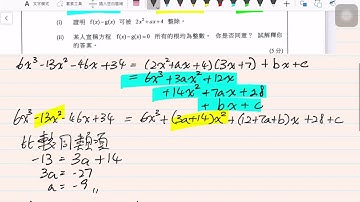 (i) 證明 f(x)–g(x) 可被 2x²+ax+4 整除。
(ii) 某人宣稱方程 f(x)–g(x)=0 所有的根均為整數。你是否同意？試解釋你的答案。
(5 分)
6x³-13x²-46x+34 = (2x²+ax+4)(3x+7)+bx+c
= 6x³+3ax²+12x
+14x²+7ax+28
+ bx+c
6x³-13x²-46x+34 = 6x³+(3a+14)x²+(12+7a+b)x+28+c
比較同類項
-13 = 3a+14
3a = -27
a = -9